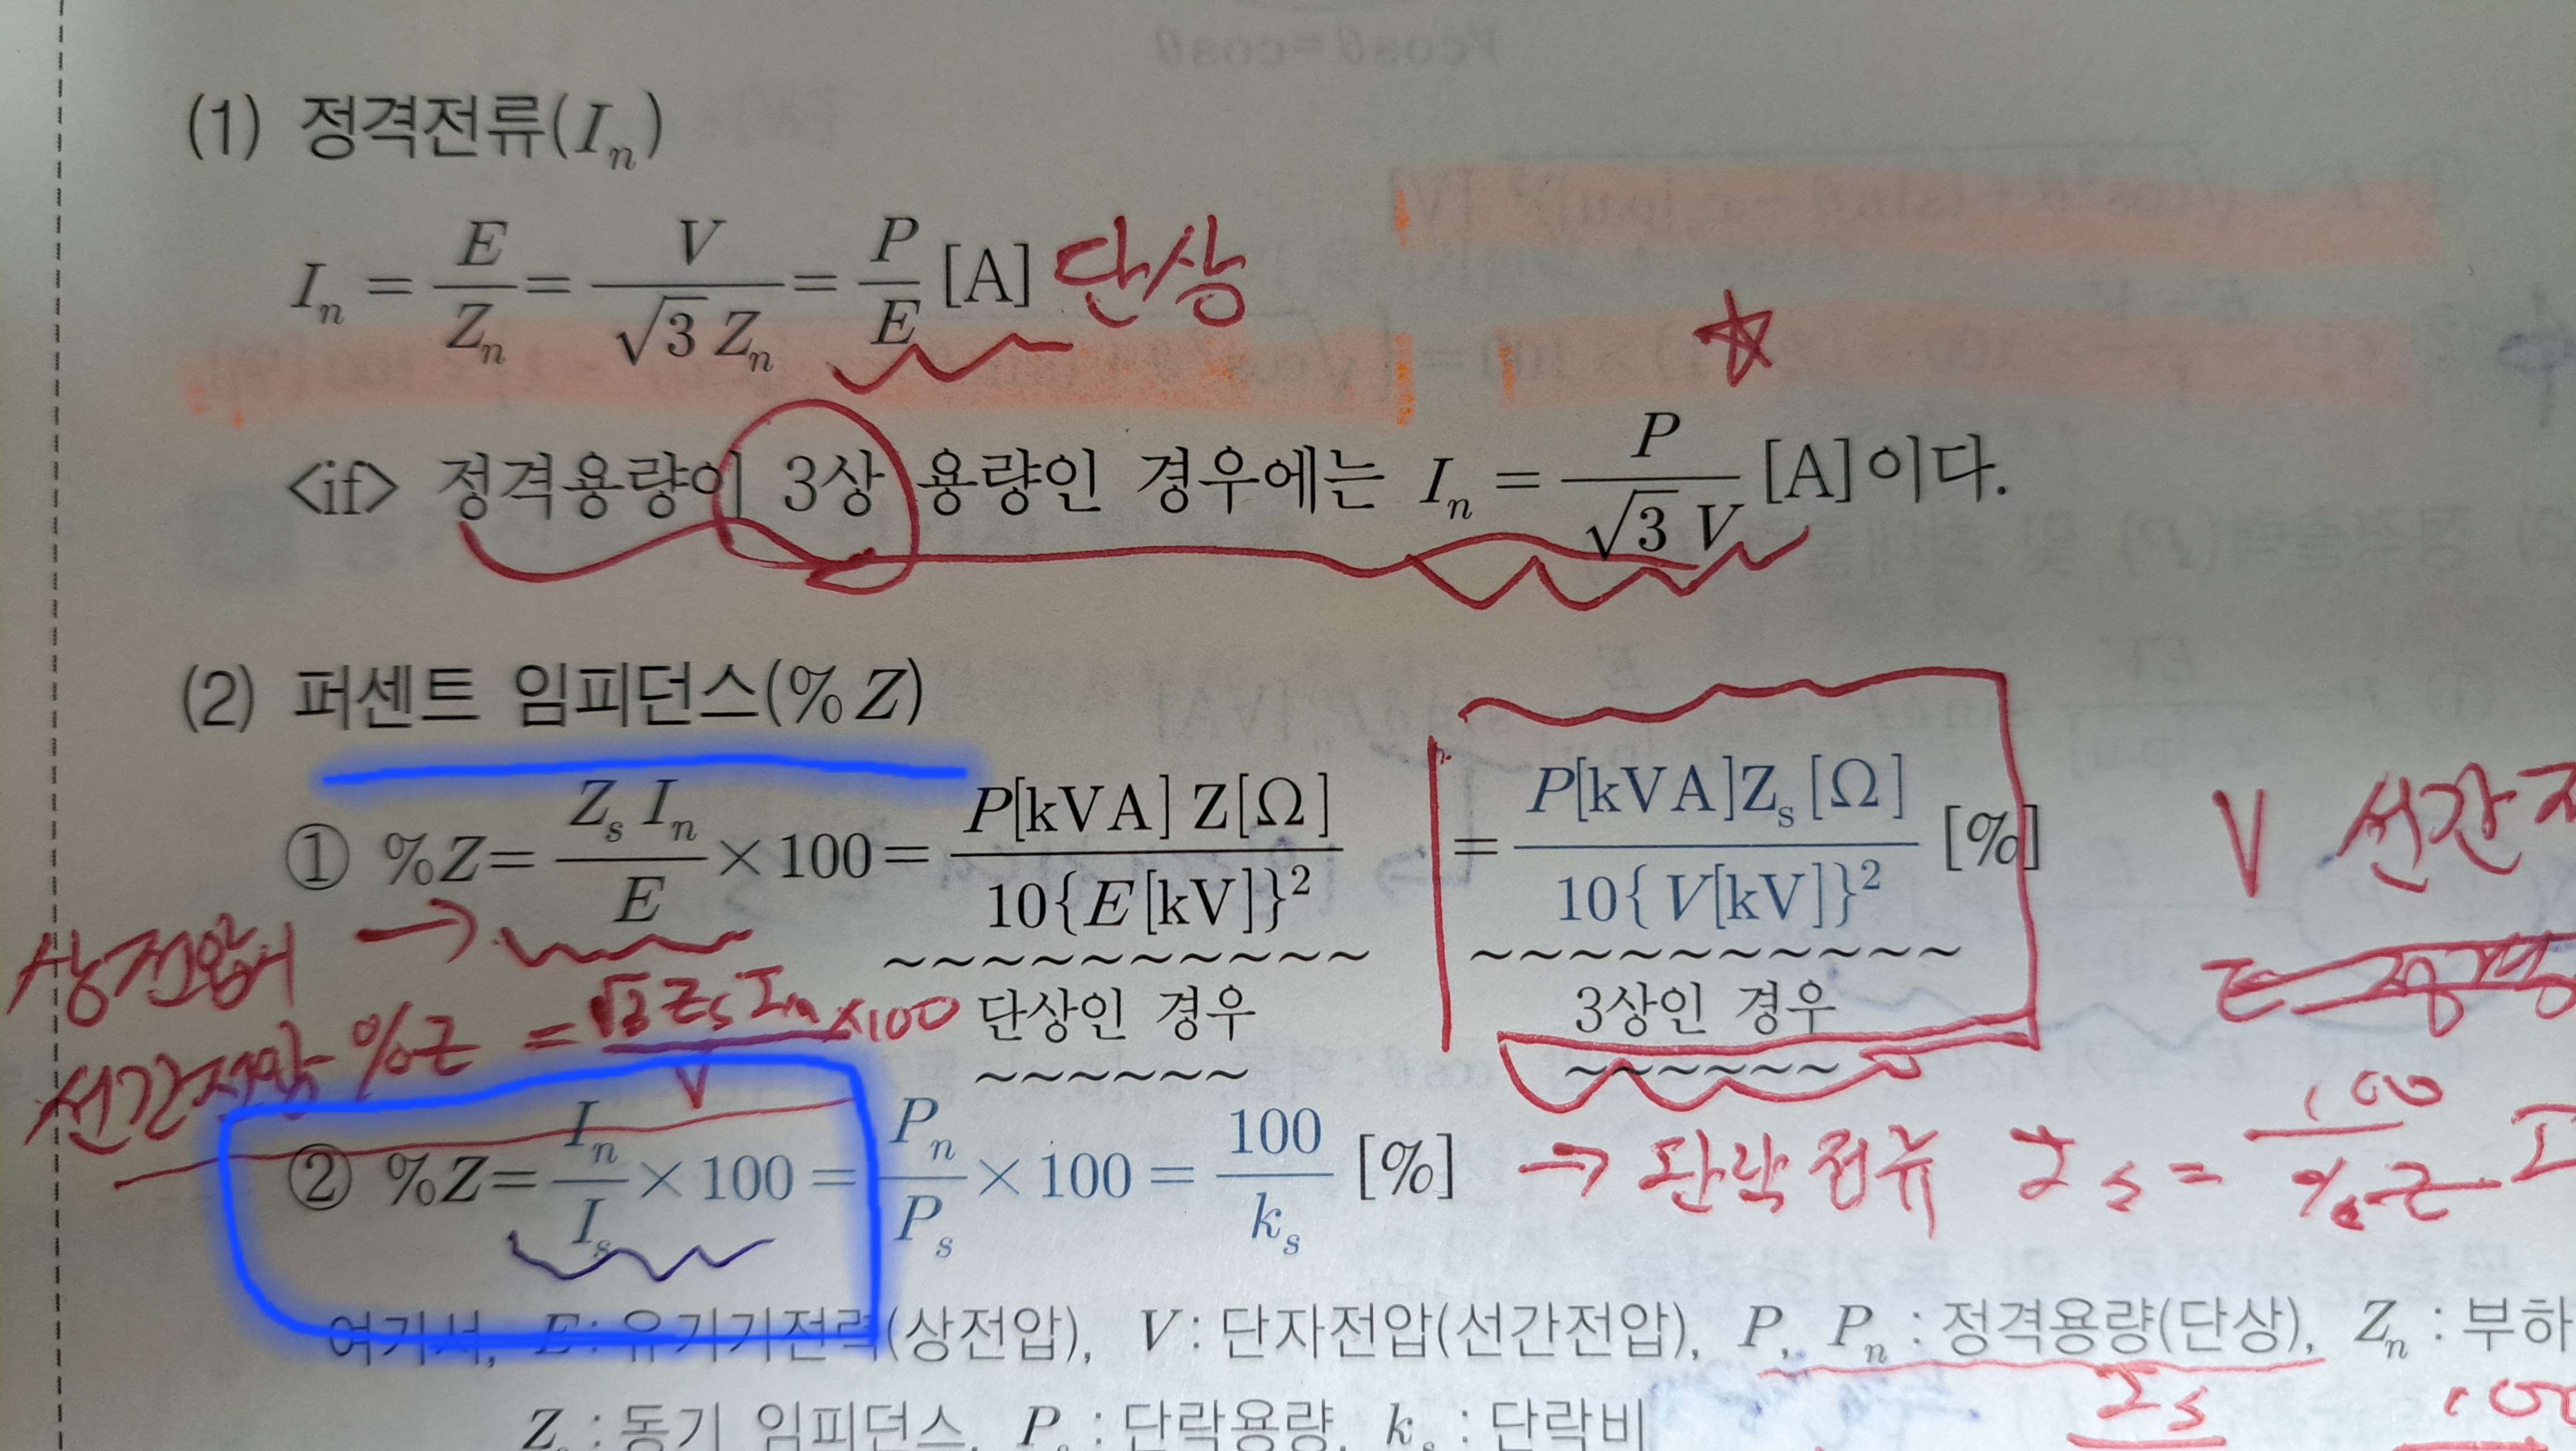 (1) 정격전류(Iₙ)
Iₙ = E/Zₙ = V/(√3 Zₙ) = P/E [A] 단상
<if> 정격용량이 3상 용량인 경우에는 Iₙ = P/(√3 V) [A]이다.
(2) 퍼센트 임피던스(%Z)
① %Z= (Zₛ Iₙ)/E ×100= (P[kVA] Z[Ω])/(10{E[kV]}²) = (P[kVA]Zₛ[Ω])/(10{V[kV]}²) [%]
V 선간
상전압
단상인 경우 3상인 경우
선간전압 %Z = (√3 Zₛ Iₙ)/V ×100
② %Z= Iₙ/Iₛ ×100 = Pₙ/Pₛ ×100 = 100/kₛ [%] → 단락전류 Iₛ = 100/%Z I
여기서, E : 유기기전력(상전압), V : 단자전압(선간전압), P, Pₙ : 정격용량(단상), Zₙ : 부하
Zₛ : 동기 임피던스, Pₛ : 단락용량, kₛ : 단락비
Is 100